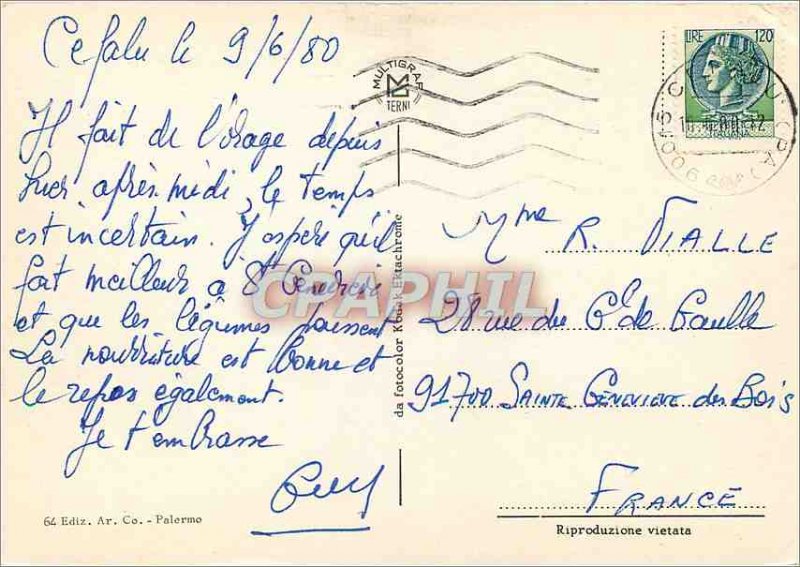 Cefalu le 9/6/80
Il fait de l'orage depuis
hier après midi, le temps
est incertain. J'espère qu'il
fait meilleur à Ste Geneviève
et que les légumes poussent
La nourriture est bonne et
le repos également.
Je t'embrasse
64 Ediz. Ar. Co. - Palermo
MULTIGRAF
TERNI
da fotocolor Kodak Ektachrome
CPAPHIL
LIRE 120
ITALIANA
Mme R. VIALLE
28 rue du Gl de Gaulle
91700 SAINTE GENEVIEVE des Bois
FRANCE
Riproduzione vietata